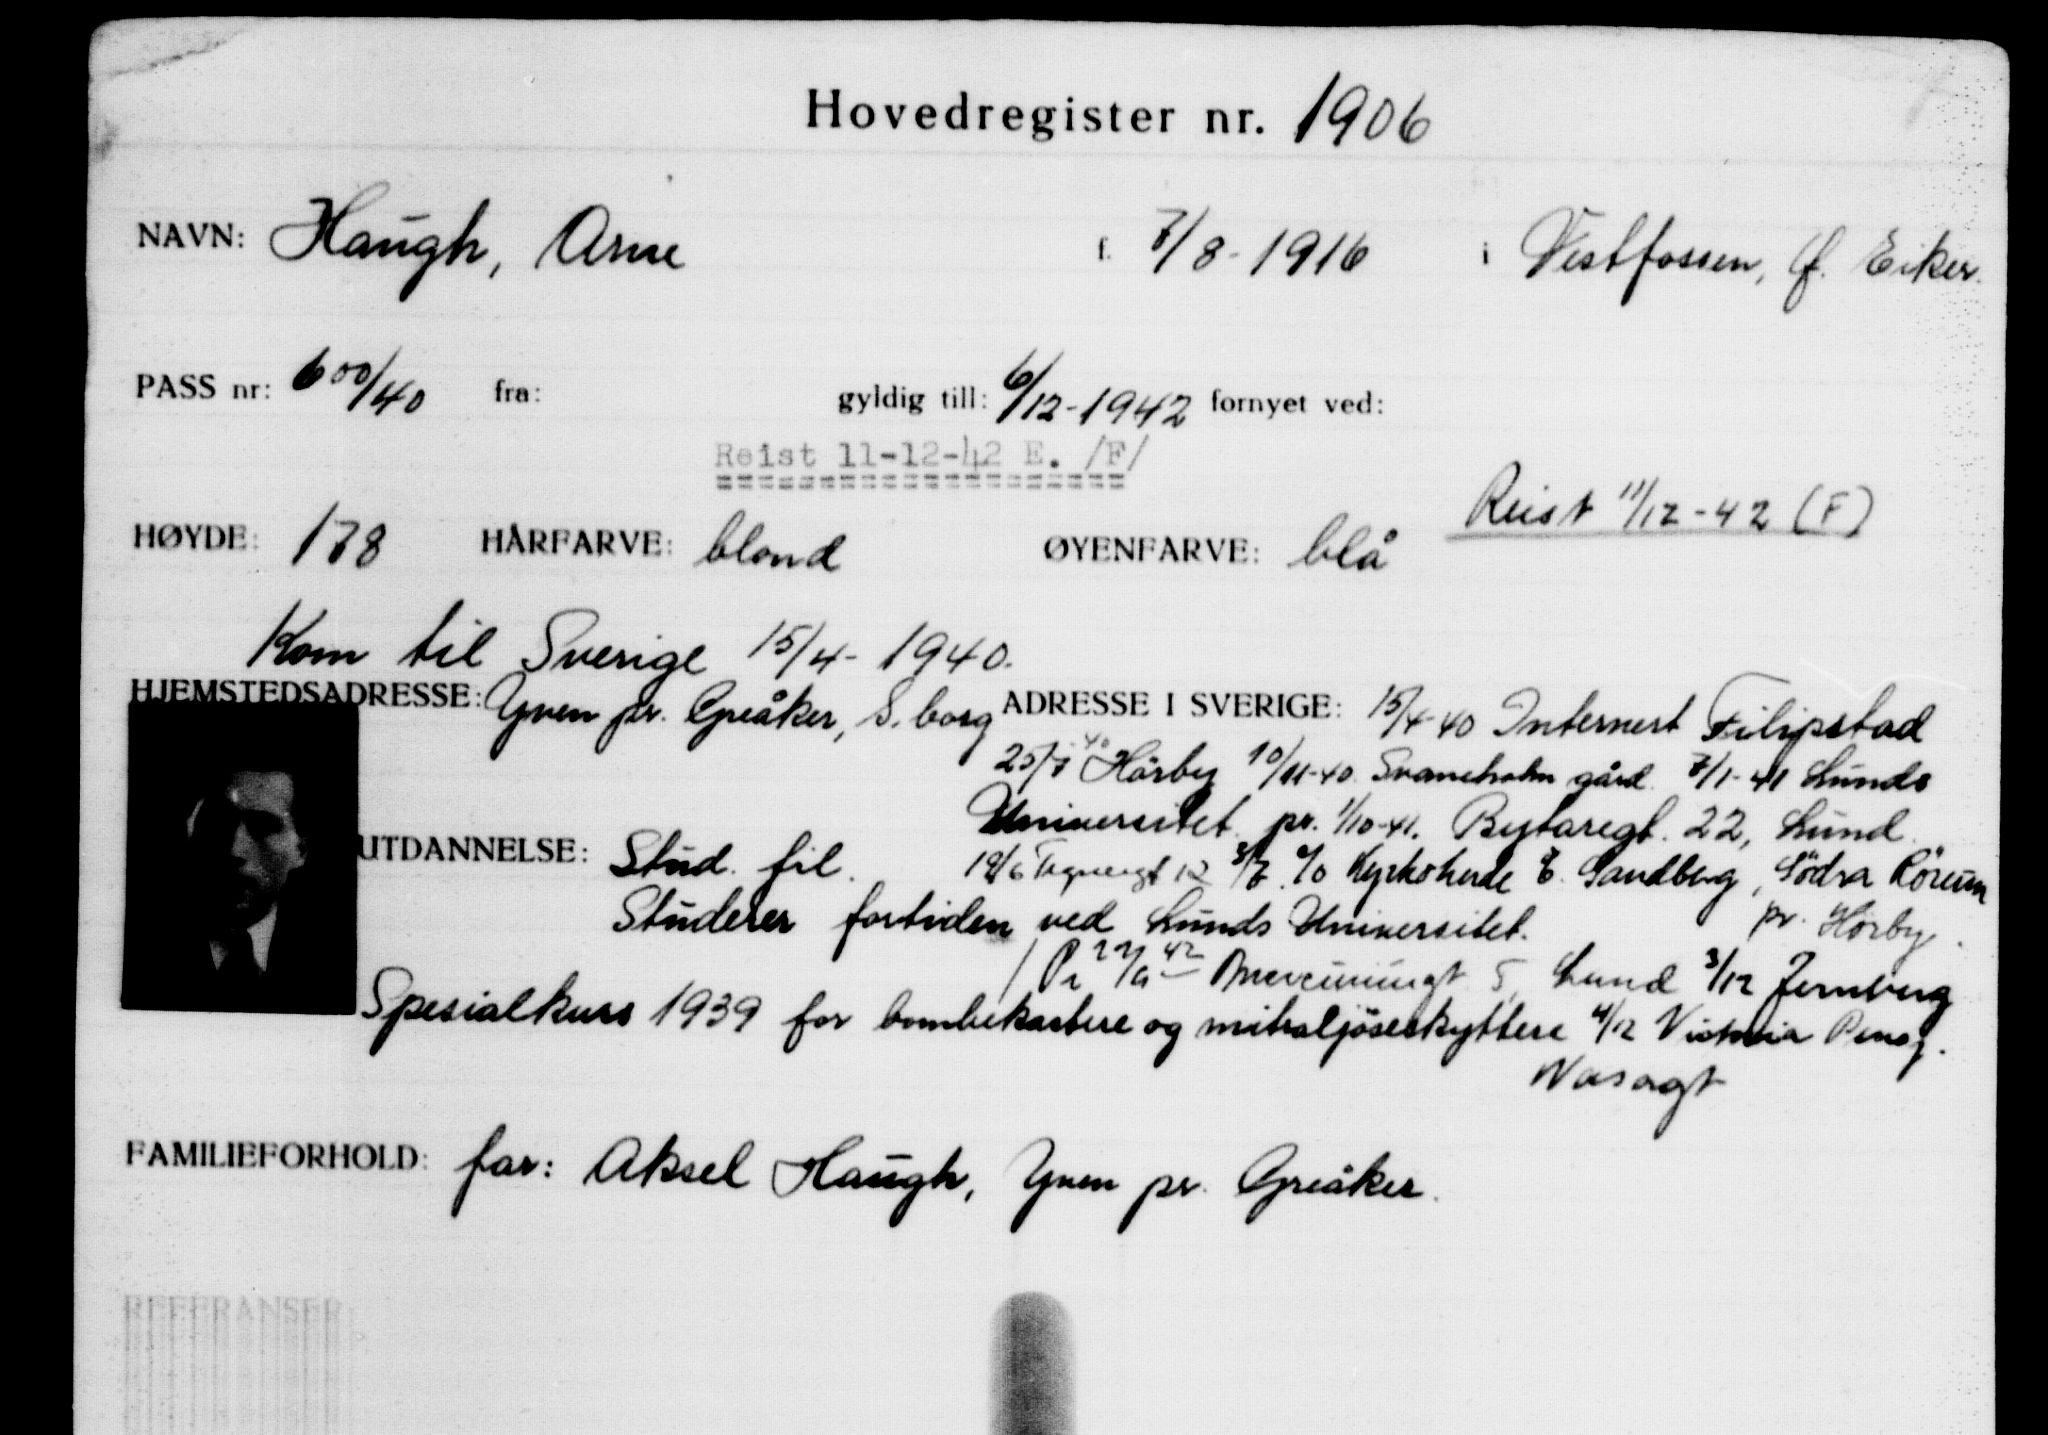 Hovedregister nr. 1906
NAVN: Haugh, Arne f. 7/8-1916 i Vestfossen, Ø. Eiker.
PASS nr: 600/40 fra: gyldig till: 6/12-1942 fornyet ved:
Reist 11-12-42 E. /F/
Reist 11/12-42 (F)
HØYDE: 178 HÅRFARVE: blond ØYENFARVE: blå
Kom til Sverige 15/4-1940.
HJEMSTEDSADRESSE: Yven pr. Greåker, S.borg
ADRESSE I SVERIGE: 15/4-40 Internert Filipstad
Hörby 10/11-40. Svaneholm gård. 7/1-41 Lunds
Universitet. pr. 1/10-41. Bytaregt. 22, Lund.
Tegnergt 12 c/o Kyrkoherde E. Sandberg, Södra Rörum
pr. Hörby.
UTDANNELSE: Stud. fil.
Studerer fortiden ved Lunds Universitet.
5, Lund 3/12 Jernberg
Spesialkurs 1939 for bombekastere og mitraljöseskyttere 4/12 Victoria Pensj.
Vasagt
FAMILIEFORHOLD: far: Aksel Haugh, Yven pr. Greåker.
REFERANSER: